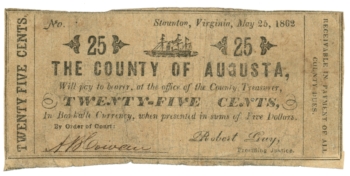 No.
Staunton, Virginia, May 25, 1862
25 25
THE COUNTY OF AUGUSTA,
Will pay to bearer, at the office of the County Treasurer,
TWENTY-FIVE CENTS,
In Bankable Currency, when presented in sums of Five Dollars.
By Order of Court:
Presiding Justice.
TWENTY FIVE CENTS.
RECEIVABLE IN PAYMENT OF ALL
COUNTY DUES.